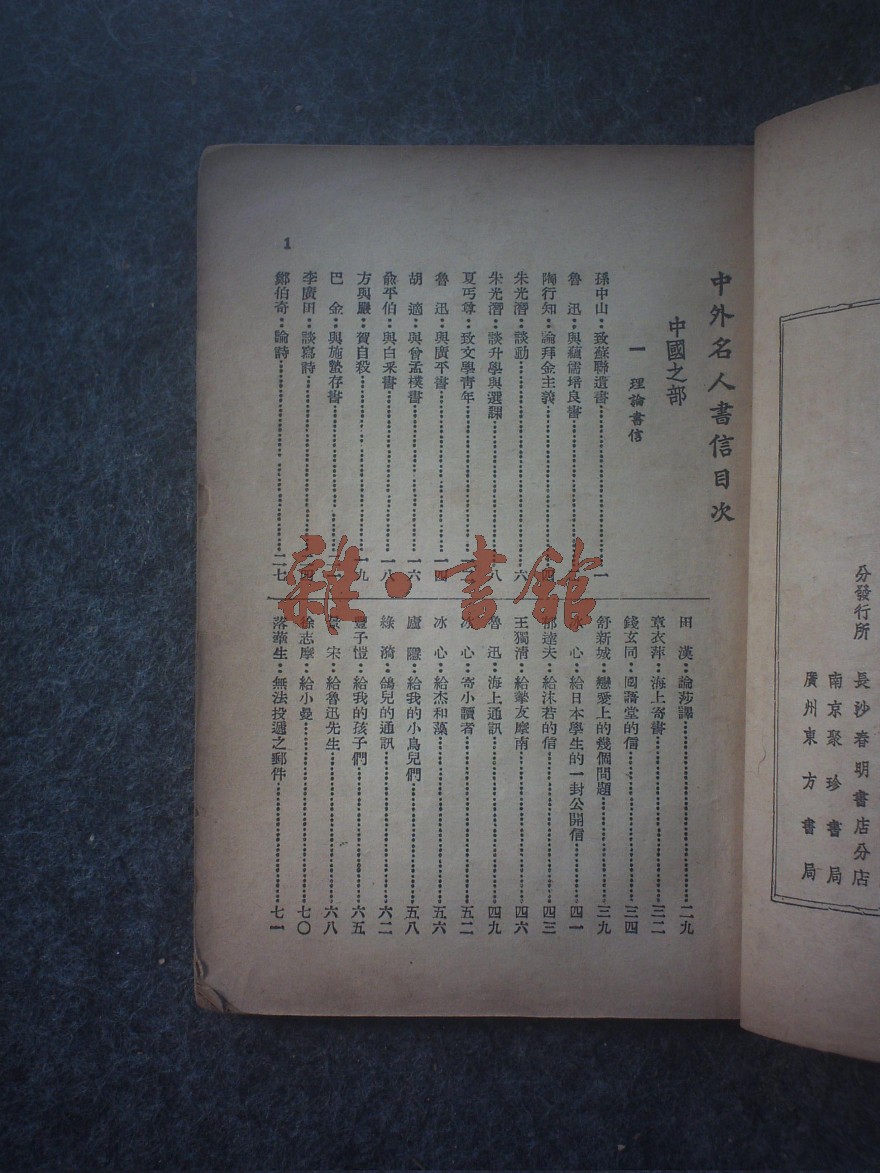 分發行所
長沙春明書店分店
南京聚珍書局
廣州東方書局
中外名人書信目次
中國之部
一 理論書信
孫中山：致蘇聯遺書……一
魯 迅：與蘊儒培良書……
陶行知：論拜金主義……四
朱光潛：談動……六
朱光潛：談升學與選課……八
夏丏尊：致文學青年……
魯 迅：與廣平書……一四
胡 適：與曾孟樸書……一六
俞平伯：與白采書……一八
方與嚴：賀自殺……一九
巴 金：與施蟄存書……
李廣田：談寫詩……
鄭伯奇：論詩……二七
田 漢：論莎譯……二九
章衣萍：海上寄書……三二
錢玄同：回語堂的信……三四
舒新城：戀愛上的幾個問題……三九
冰 心：給日本學生的一封公開信……四一
郁達夫：給沫若的信……四三
王獨清：給摯友摩南……四六
魯 迅：海上通訊……四九
冰 心：寄小讀者……五二
冰 心：給杰和藻……五六
廬 隱：給我的小鳥兒們……五八
綠 漪：鴿兒的通訊……六二
豐子愷：給我的孩子們……六五
景 宋：給魯迅先生……六八
徐志摩：給小曼……七〇
落華生：無法投遞之郵件……七一
1
雜·書館